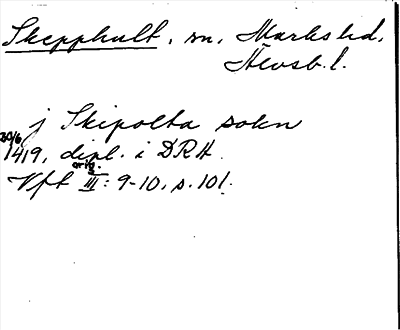 Skepphult, sn, Marks hd,
Älvsb. l.
j Skipolta sokn
30/6 1419, dipl. i DRA.
orig.
Vft III: 9-10, s. 101.